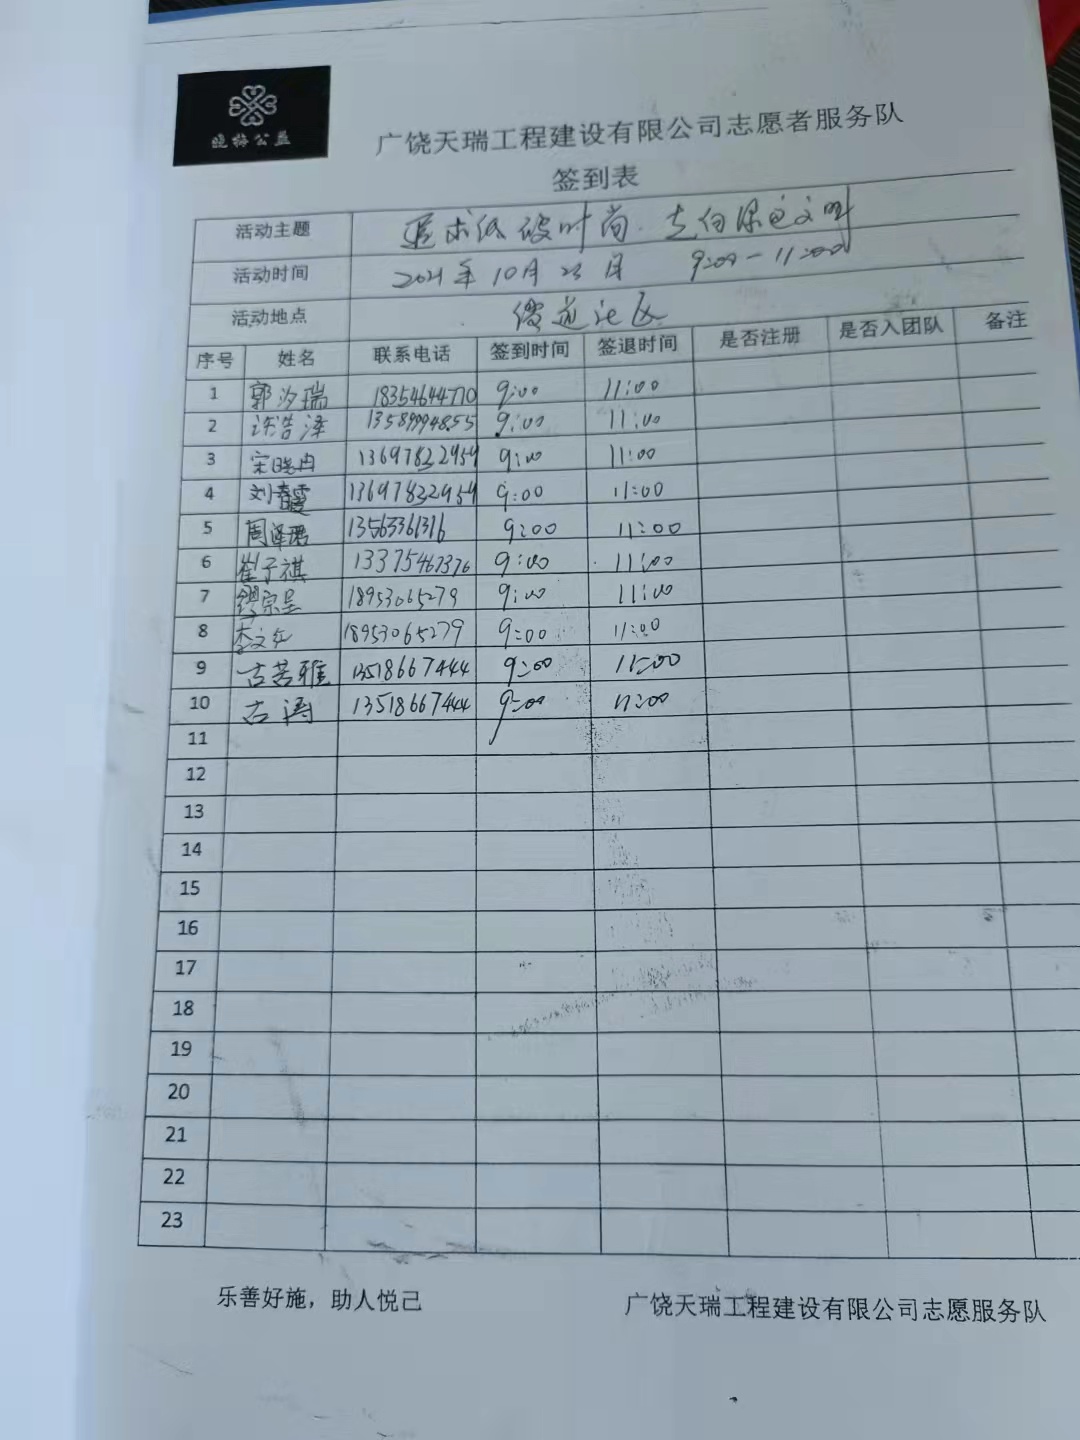 晓梅公益
广饶天瑞工程建设有限公司志愿者服务队
签到表
活动主题 追求低碳时尚 走向绿色文明
活动时间 2021年10月23月 9:00-11:00
活动地点 社区
序号 姓名 联系电话 签到时间 签退时间 是否注册 是否入团队 备注
1 郭汐瑞 18354644770 9:00 11:00
2 许浩泽 13589994855 9:00 11:00
3 宋晓冉 13697832959 9:00 11:00
4 刘春霞 13697832959 9:00 11:00
5 周泽珺 13563361316 9:00 11:00
6 崔子祺 13375467376 9:00 11:00
7 缪宗呈 18953065279 9:00 11:00
8 李文红 18953065279 9:00 11:00
9 古若雅 13518667444 9:00 11:00
10 古涛 13518667444 9:00 11:00
11
12
13
14
15
16
17
18
19
20
21
22
23
乐善好施，助人悦己 广饶天瑞工程建设有限公司志愿服务队